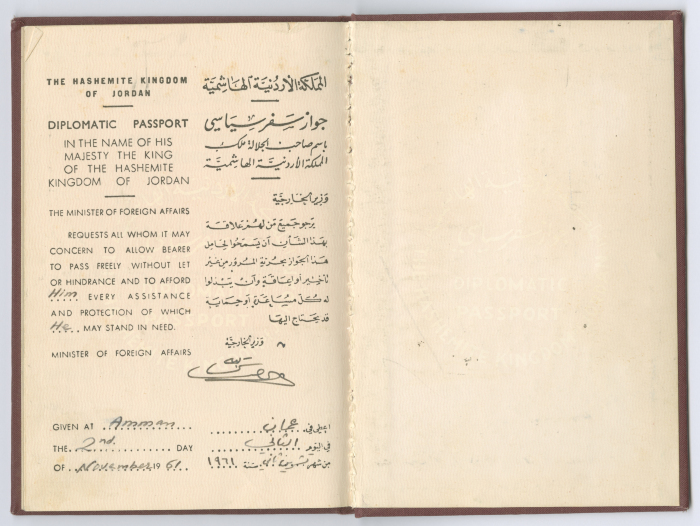 THE HASHEMITE KINGDOM
OF JORDAN
DIPLOMATIC PASSPORT
IN THE NAME OF HIS
MAJESTY THE KING
OF THE HASHEMITE
KINGDOM OF JORDAN
THE MINISTER OF FOREIGN AFFAIRS
REQUESTS ALL WHOM IT MAY
CONCERN TO ALLOW BEARER
TO PASS FREELY WITHOUT LET
OR HINDRANCE AND TO AFFORD
Him EVERY ASSISTANCE
AND PROTECTION OF WHICH
He MAY STAND IN NEED.
MINISTER OF FOREIGN AFFAIRS
GIVEN AT Amman
THE 2nd DAY
OF November 19 61
المملكة الأردنية الهاشمية
جواز سفر سياسي
باسم صاحب الجلالة ملك
المملكة الأردنية الهاشمية
وزير الخارجية
يرجو جميع من لهم علاقة
بهذا الشأن أن يسمحوا لحامل
هذا الجواز بحرية المرور من غير
تأخير أو إعاقة وأن يبذلوا
له كل مساعدة أو حماية
قد يحتاج إليها
وزير الخارجية
اعطي في عمان
في اليوم الثاني
من شهر تشرين ثاني سنة ١٩٦١
DIPLOMATIC
PASSPORT